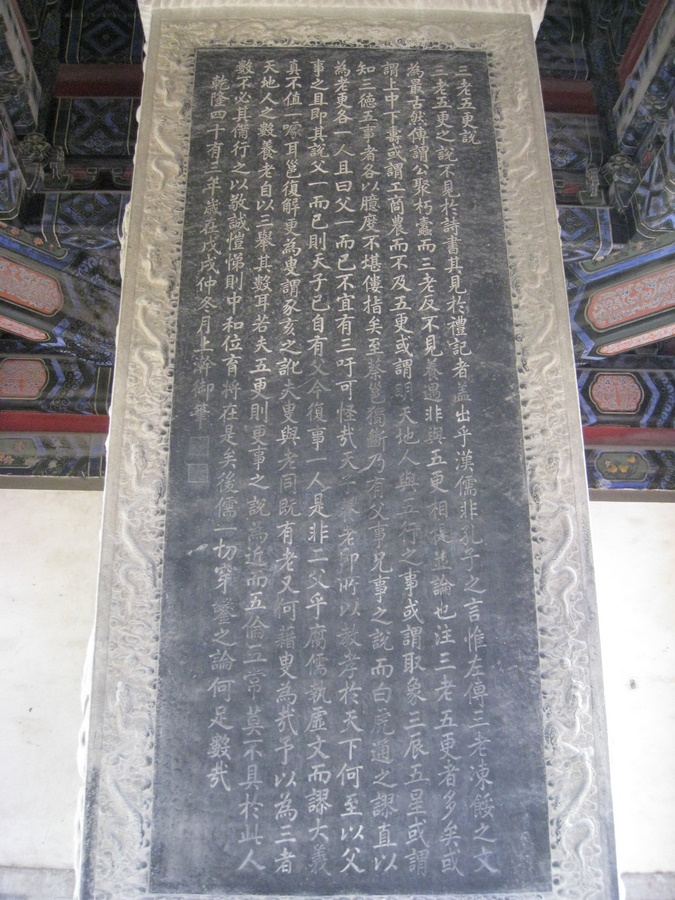 三老五更說
三老五更之說不見於詩書其見於禮記者蓋出乎漢儒非孔子之言惟左傳三老凍餒之文
為最古然傳謂公聚朽蠹而三老反不見養遇非與五更相提並論也注三老五更者多矣或
謂上中下壽或謂工商農而不及五更或謂明天地人與五行之事或謂取象三辰五星或謂
知三德五事者各以臆度不堪僂指矣至蔡邕獨斷乃有父事兄事之說而白虎通之謬直以
為老更各一人且曰父一而已不宜有三吁可怪哉天子養老即所以教孝於天下何至以父
事之且即其說父一而已則天子已自有父今復事一人是非二父乎腐儒執虛文而謬大義
真不值一噱耳邕復解更為叟謂豕亥之訛夫叟與老同既有老又何藉叟為哉予以為三者
天地人之數養老自以三舉其數耳若夫五更則更事之說為近而五倫五常莫不具於此人
數不必其備行之以敬誠愷悌則中和位育將在是矣後儒一切穿鑿之論何足數哉
乾隆四十有三年歲在戊戌仲冬月上澣御筆